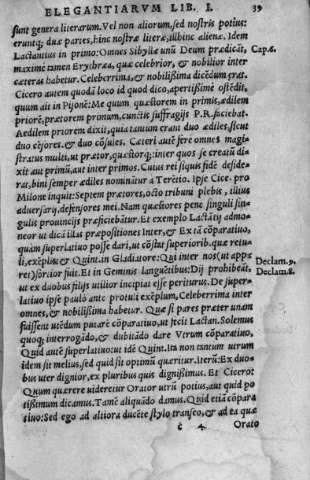 ELEGANTIARVM LIB. I. 39
sunt genera literarum. Vel non aliorum, sed nostris potius:
eruntq; duæ partes, hinc nostræ literæ, illinc alienæ. Idem
Lactantius in primo: Omnes Sibyllæ unũ Deum prædicãt, Cap.6.
maxime tamen Erythræa, quæ celebrior, & nobilior inter
cæteras habetur. Celeberrima, & nobilißima dicẽdum erat.
Cicero autem quodã loco id quod dico, apertißime ostẽdit,
quum ait in Pisonẽ: Me quum quæstorem in primis, ædilem
priorẽ, prætorem primum, cunctis suffragijs P.R. faciebat.
Aedilem priorem dixit, quia tantum erant duo ædiles, sicut
duo cẽsores, & duo cõsules. Cæteri autẽ fere omnes magi-
stratus multi, ut prætor, quæstorq; inter quos se creatũ di-
xit aut primũ, aut inter primos. Cuius rei siquis fidẽ deside-
rat, bini semper ædiles nominãtur a Terẽtio. Ipse Cice. pro
Milone inquit: Septem prætores, octo tribuni plebis, illius
aduersarij, defensores mei. Nam quæstores pene singuli sin-
gulis prouincijs præficiebãtur. Et exemplo Lactãtij admo-
neor ut dicã illas præpositiones Inter, & Ex tã cõparatiuo,
quàm superlatiuo posse dari, ut cõsulit superioribq́. quæ retu-
li, exẽplis: & Quint. in Gladiatore: Qui inter nos (ut appa Declam.9.
ret) fortior fuit. Et in Geminis languẽtibus: Dij prohibeãt, Declam.8.
ut ex duobus filijs utilior incipiat esse periturus. De super-
latiuo ipse paulo ante protuli exẽplum, Celeberrima inter
omnes, & nobilißima habetur. Quæ si pares præter unam
fuissent utẽdum putarẽ cõparatiuo, ut fecit Lactan. Solemus
quoq; interrogãdo, & dubitãdo dare Vtrum cõparatiuo,
Quid autẽ superlatiuo: ut idẽ Quint. In non tantum utrum
idem sit melius, sed quid sit optimũ quæritur. Iterũ: Ex duo-
bus uter dignior, ex pluribus quis dignißimus. Et Cicero:
Quum quærere uideretur Orator utrũ potius, aut quid po
tißimum dicamus. Tamẽ aliquãdo damus. Quid etiã cõpara
tiuo: Sed ego ad altiora ducẽte stylo transeo, & ad ea quæ
c 4 Orato